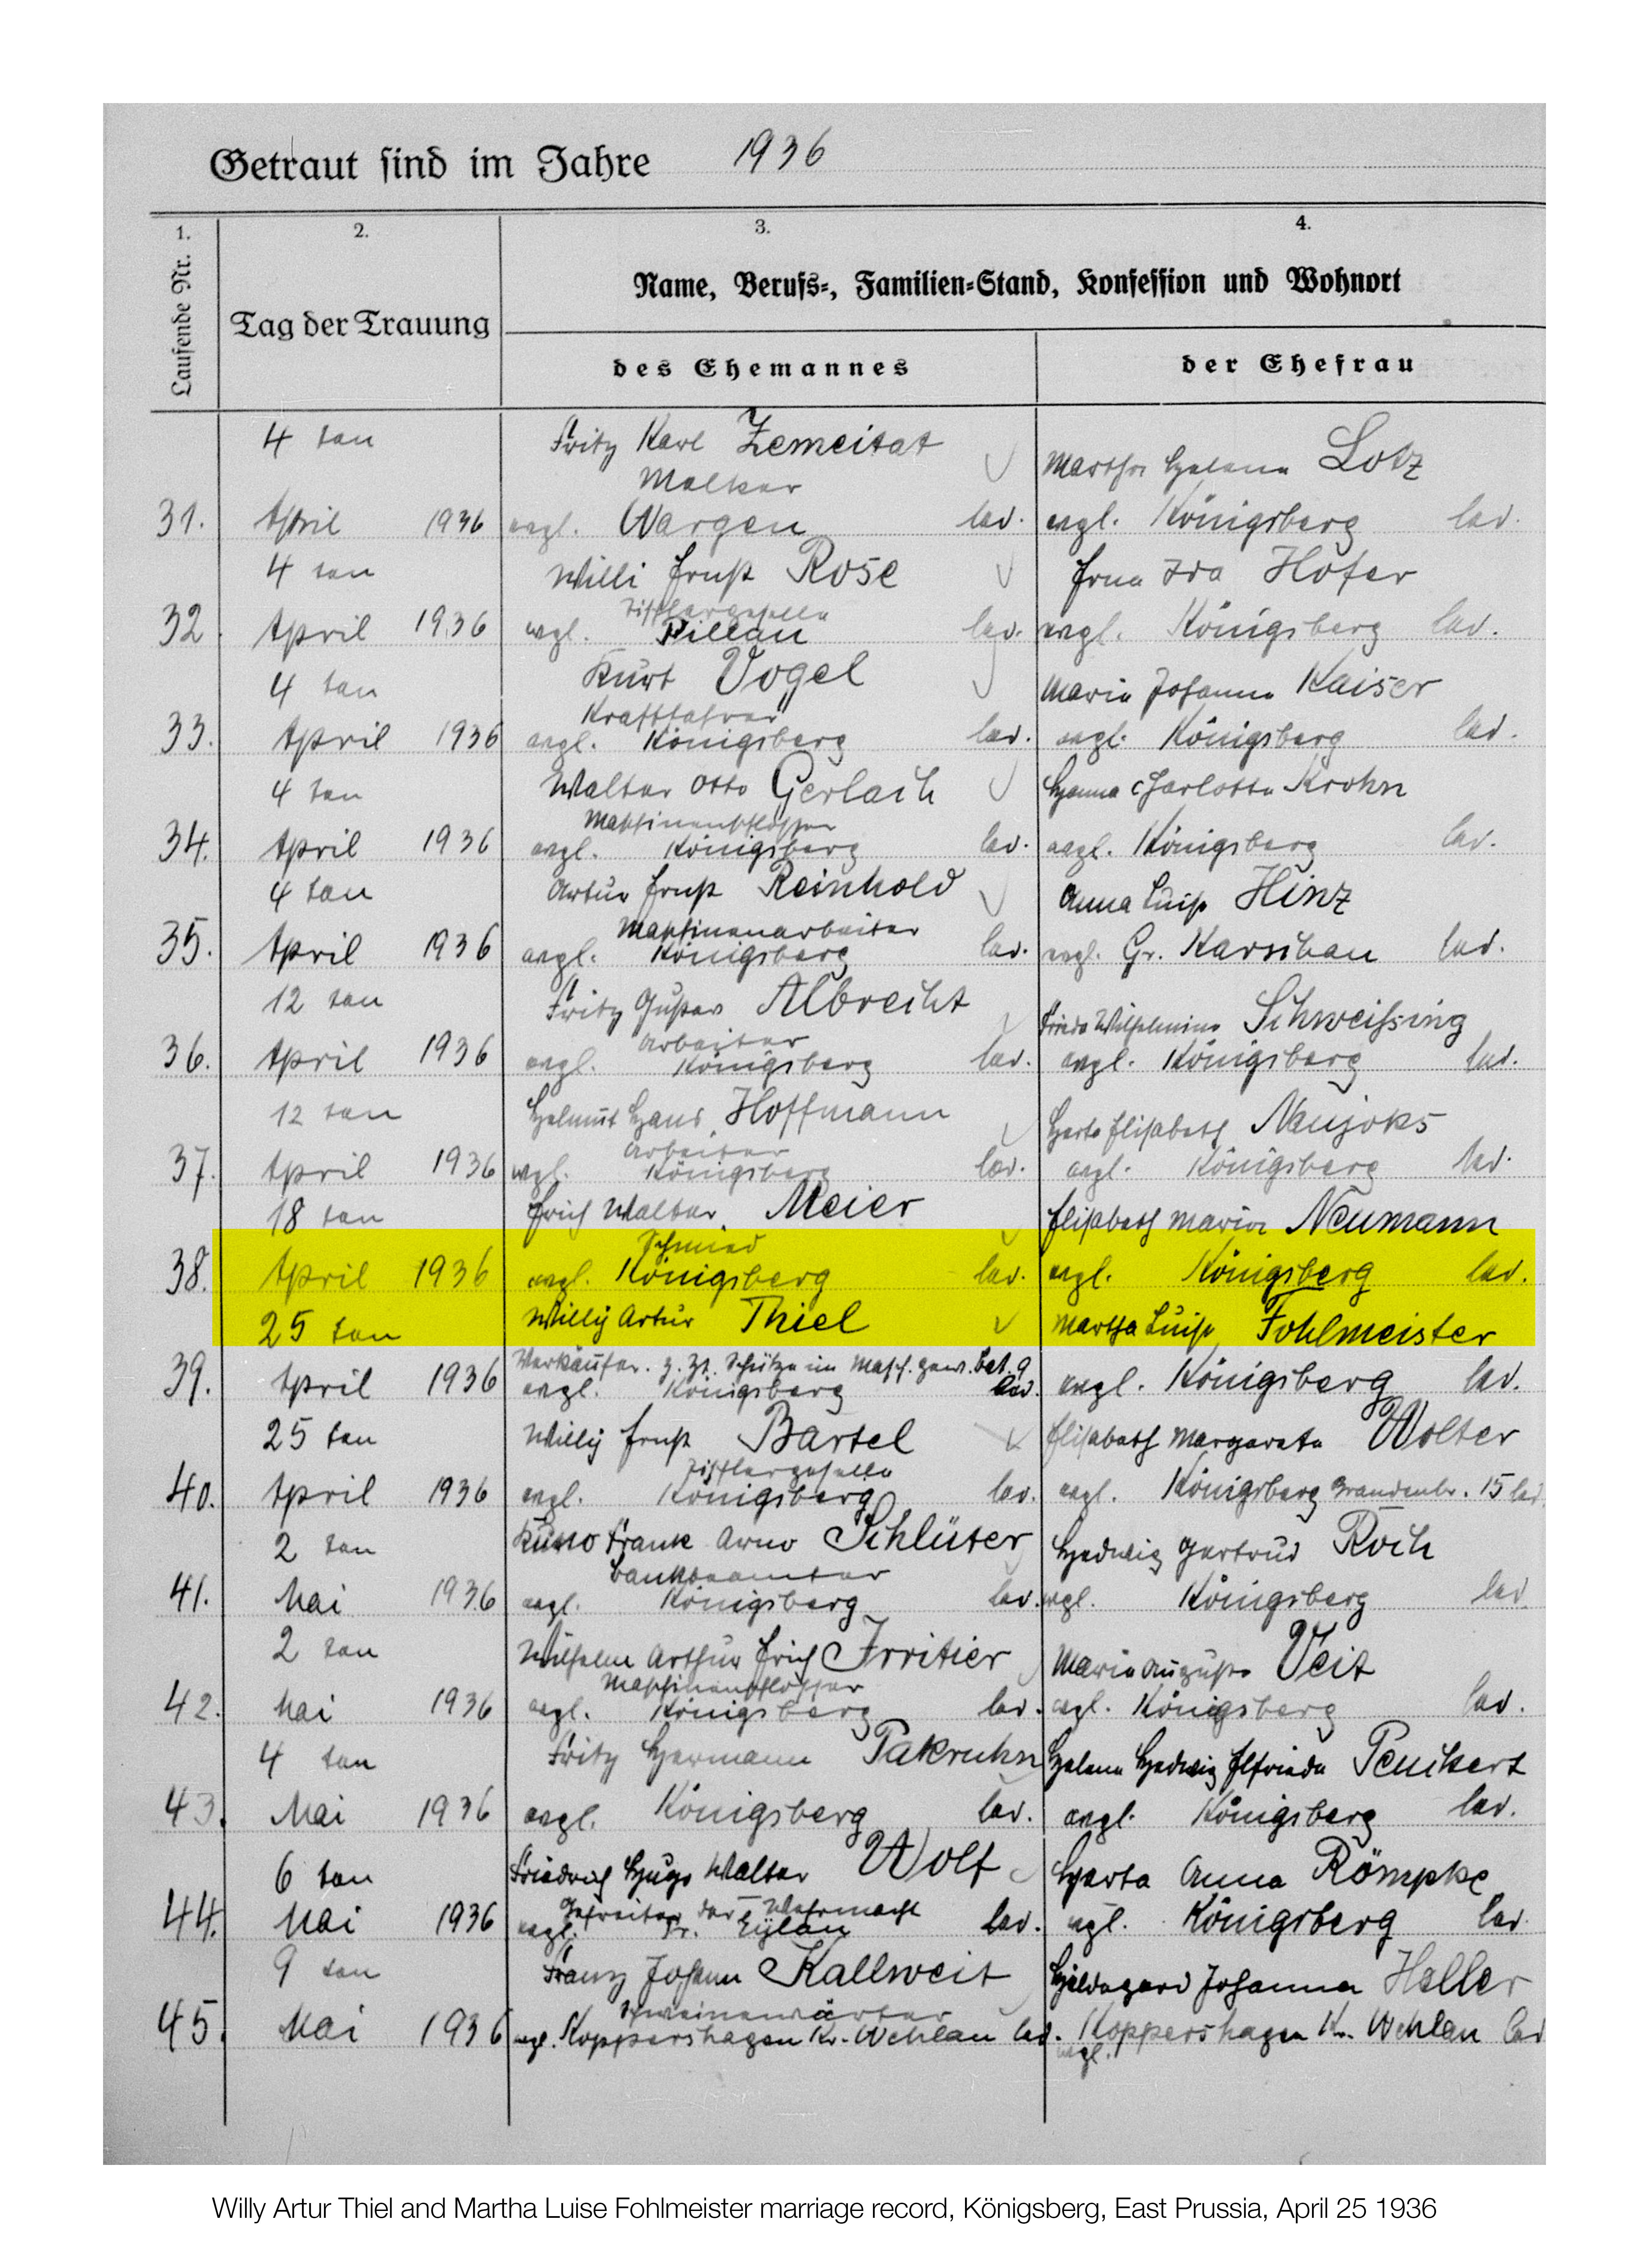 Getraut sind im Jahre 1936
1. 2. 3. 4.
Laufende Nr.
Tag der Trauung
Name, Berufs-, Familien-Stand, Konfession und Wohnort
des Ehemannes der Ehefrau
4 ten Fritz Karl Zemeitat Martha Helene Lotz
Melker
31. April 1936 evgl. Wargen led. evgl. Königsberg led.
4 ten Willi Ernst Rose Erna Ida Hofer
Tischlergeselle
32. April 1936 evgl. Pillau led. evgl. Königsberg led.
4 ten Kurt Vogel Marie Johanne Kaiser
Kraftfahrer
33. April 1936 evgl. Königsberg led. evgl. Königsberg led.
4 ten Walter Otto Gerlach Hanna Charlotte Krohn
Maschinenschlosser
34. April 1936 evgl. Königsberg led. evgl. Königsberg led.
4 ten Artur Ernst Reinhold Anna Luise Hinz
Maschinenarbeiter
35. April 1936 evgl. Königsberg led. evgl. Gr. Karschau led.
12 ten Fritz Gustav Albrecht Frieda Wilhelmine Schweissing
Arbeiter
36. April 1936 evgl. Königsberg led. evgl. Königsberg led.
12 ten Helmut Hans Hoffmann Herta Elisabeth Naujoks
Arbeiter
37. April 1936 evgl. Königsberg led. evgl. Königsberg led.
18 ten Erich Walter Meier Elisabeth Marie Neumann
Schmied
38. April 1936 evgl. Königsberg led. evgl. Königsberg led.
25 ten Willy Artur Thiel Martha Luise Fohlmeister
Verkäufer. z. Zt. Schütze im Masch. gew. Bat. 9
39. April 1936 evgl. Königsberg led. evgl. Königsberg led.
25 ten Willy Ernst Bartel Elisabeth Margarete Wolter
Tischlergeselle
40. April 1936 evgl. Königsberg led. evgl. Königsberg Brandenbr. 15 led.
2 ten Kuno Frank Arno Schlüter Hedwig Gertrud Roch
Bankbeamter
41. Mai 1936 evgl. Königsberg led. evgl. Königsberg led.
2 ten Wilhelm Arthur Erich Irritier Marie Auguste Veit
Maschinenschlosser
42. Mai 1936 evgl. Königsberg led. evgl. Königsberg led.
4 ten Fritz Hermann Pakruhn Helene Hedwig Elfriede Penkert
43. Mai 1936 evgl. Königsberg led. evgl. Königsberg led.
6 ten Friedrich Hugo Walter Wolf Herta Anna Römpke
Gefreiter der Wehrmacht
44. Mai 1936 evgl. Pr. Eylau led. evgl. Königsberg led.
9 ten Franz Johann Kallweit Hildegard Johanna Heller
Schweinewärter
45. Mai 1936 evgl. Koppershagen Kr. Wehlau led. Koppershagen Kr. Wehlau led
evgl.
Willy Artur Thiel and Martha Luise Fohlmeister marriage record, Königsberg, East Prussia, April 25 1936